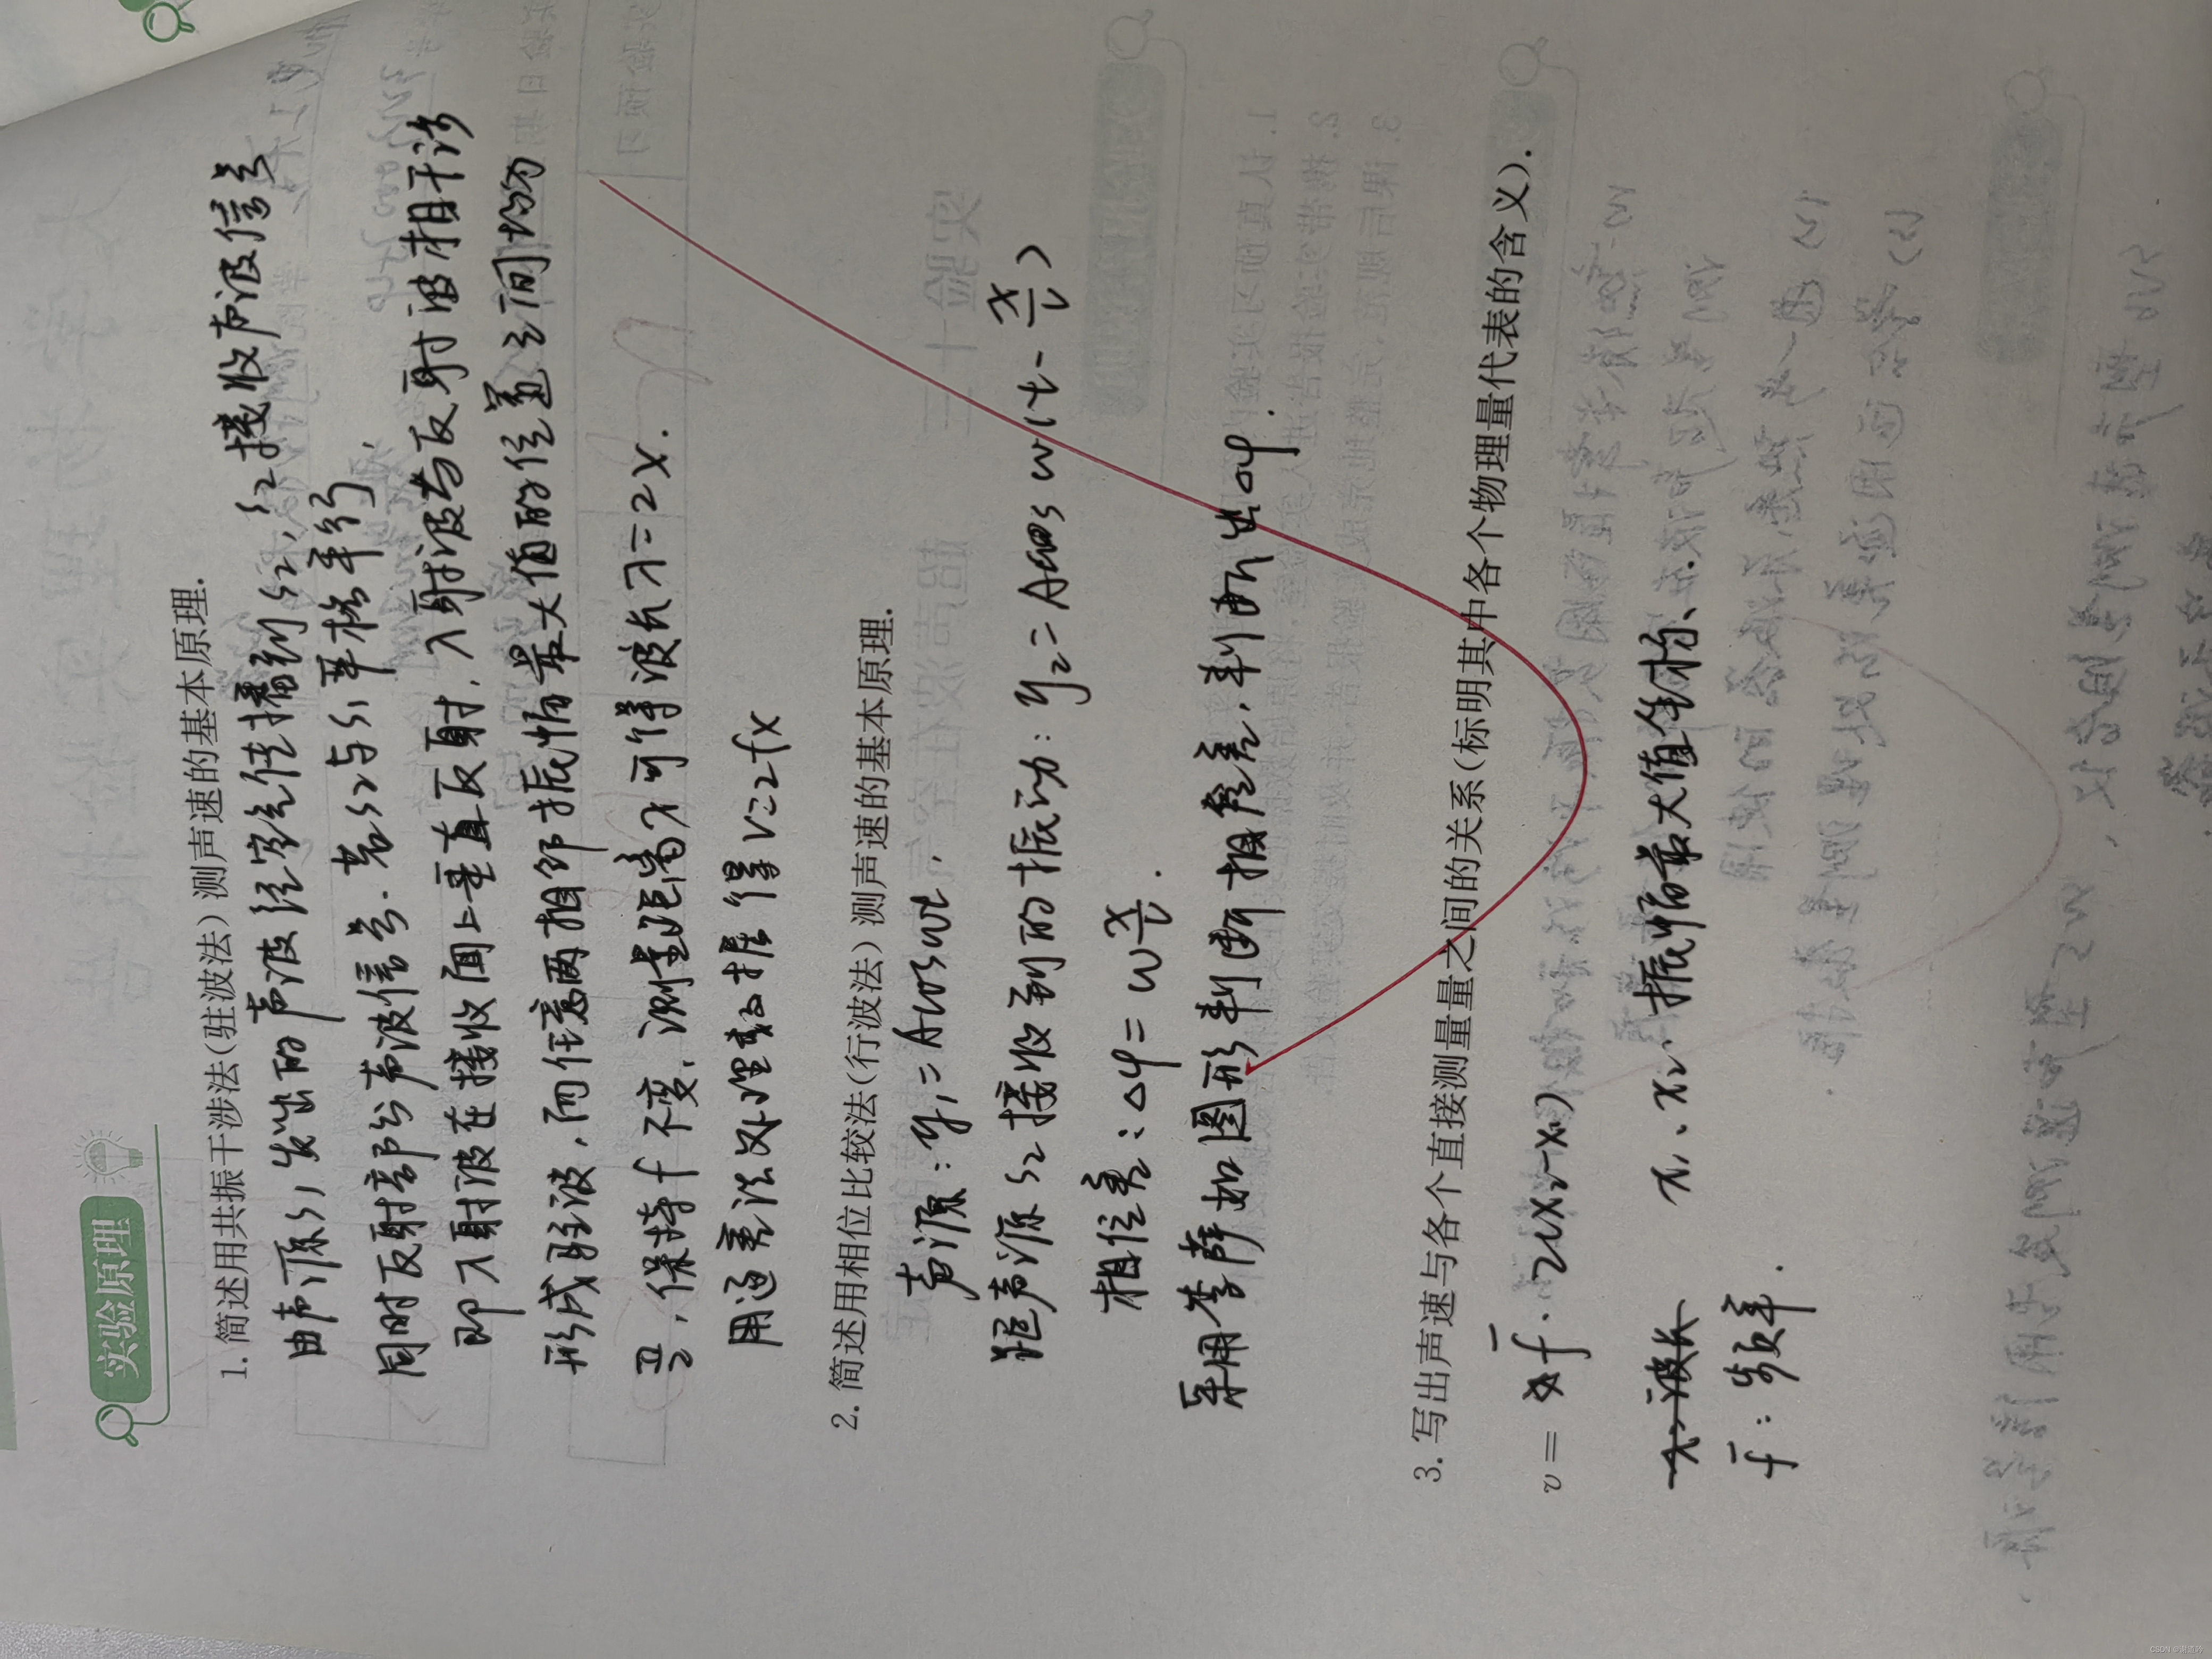 实验原理
1. 简述用共振干涉法(驻波法)测声速的基本原理.
由声源S1发出的声波经空气传播到S2, S2接收声波信号
同时反射部分声波信号. 若S2与S1严格平行,
即入射波在接收面上垂直反射, 入射波与反射波相干涉
形成驻波, 而任意两相邻振幅最大值的位置之间均为
, 保持f不变, 测量距离 可得波长λ=2X.
用逐差法处理数据得V=2fX
2. 简述用相位比较法(行波法)测声速的基本原理.
声源: y1=Acosωt,
距声源S2接收到的振动: y2=Acosω(t-x/v)
相位差: Δφ=ω x/v.
采用李萨如图形判断相位差, 判断出Δφ.
3. 写出声速与各个直接测量量之间的关系(标明其中各个物理量代表的含义).
v= f̄·2(X2-X1)
X1、X2: 振幅最大值坐标.
f̄: 频率.